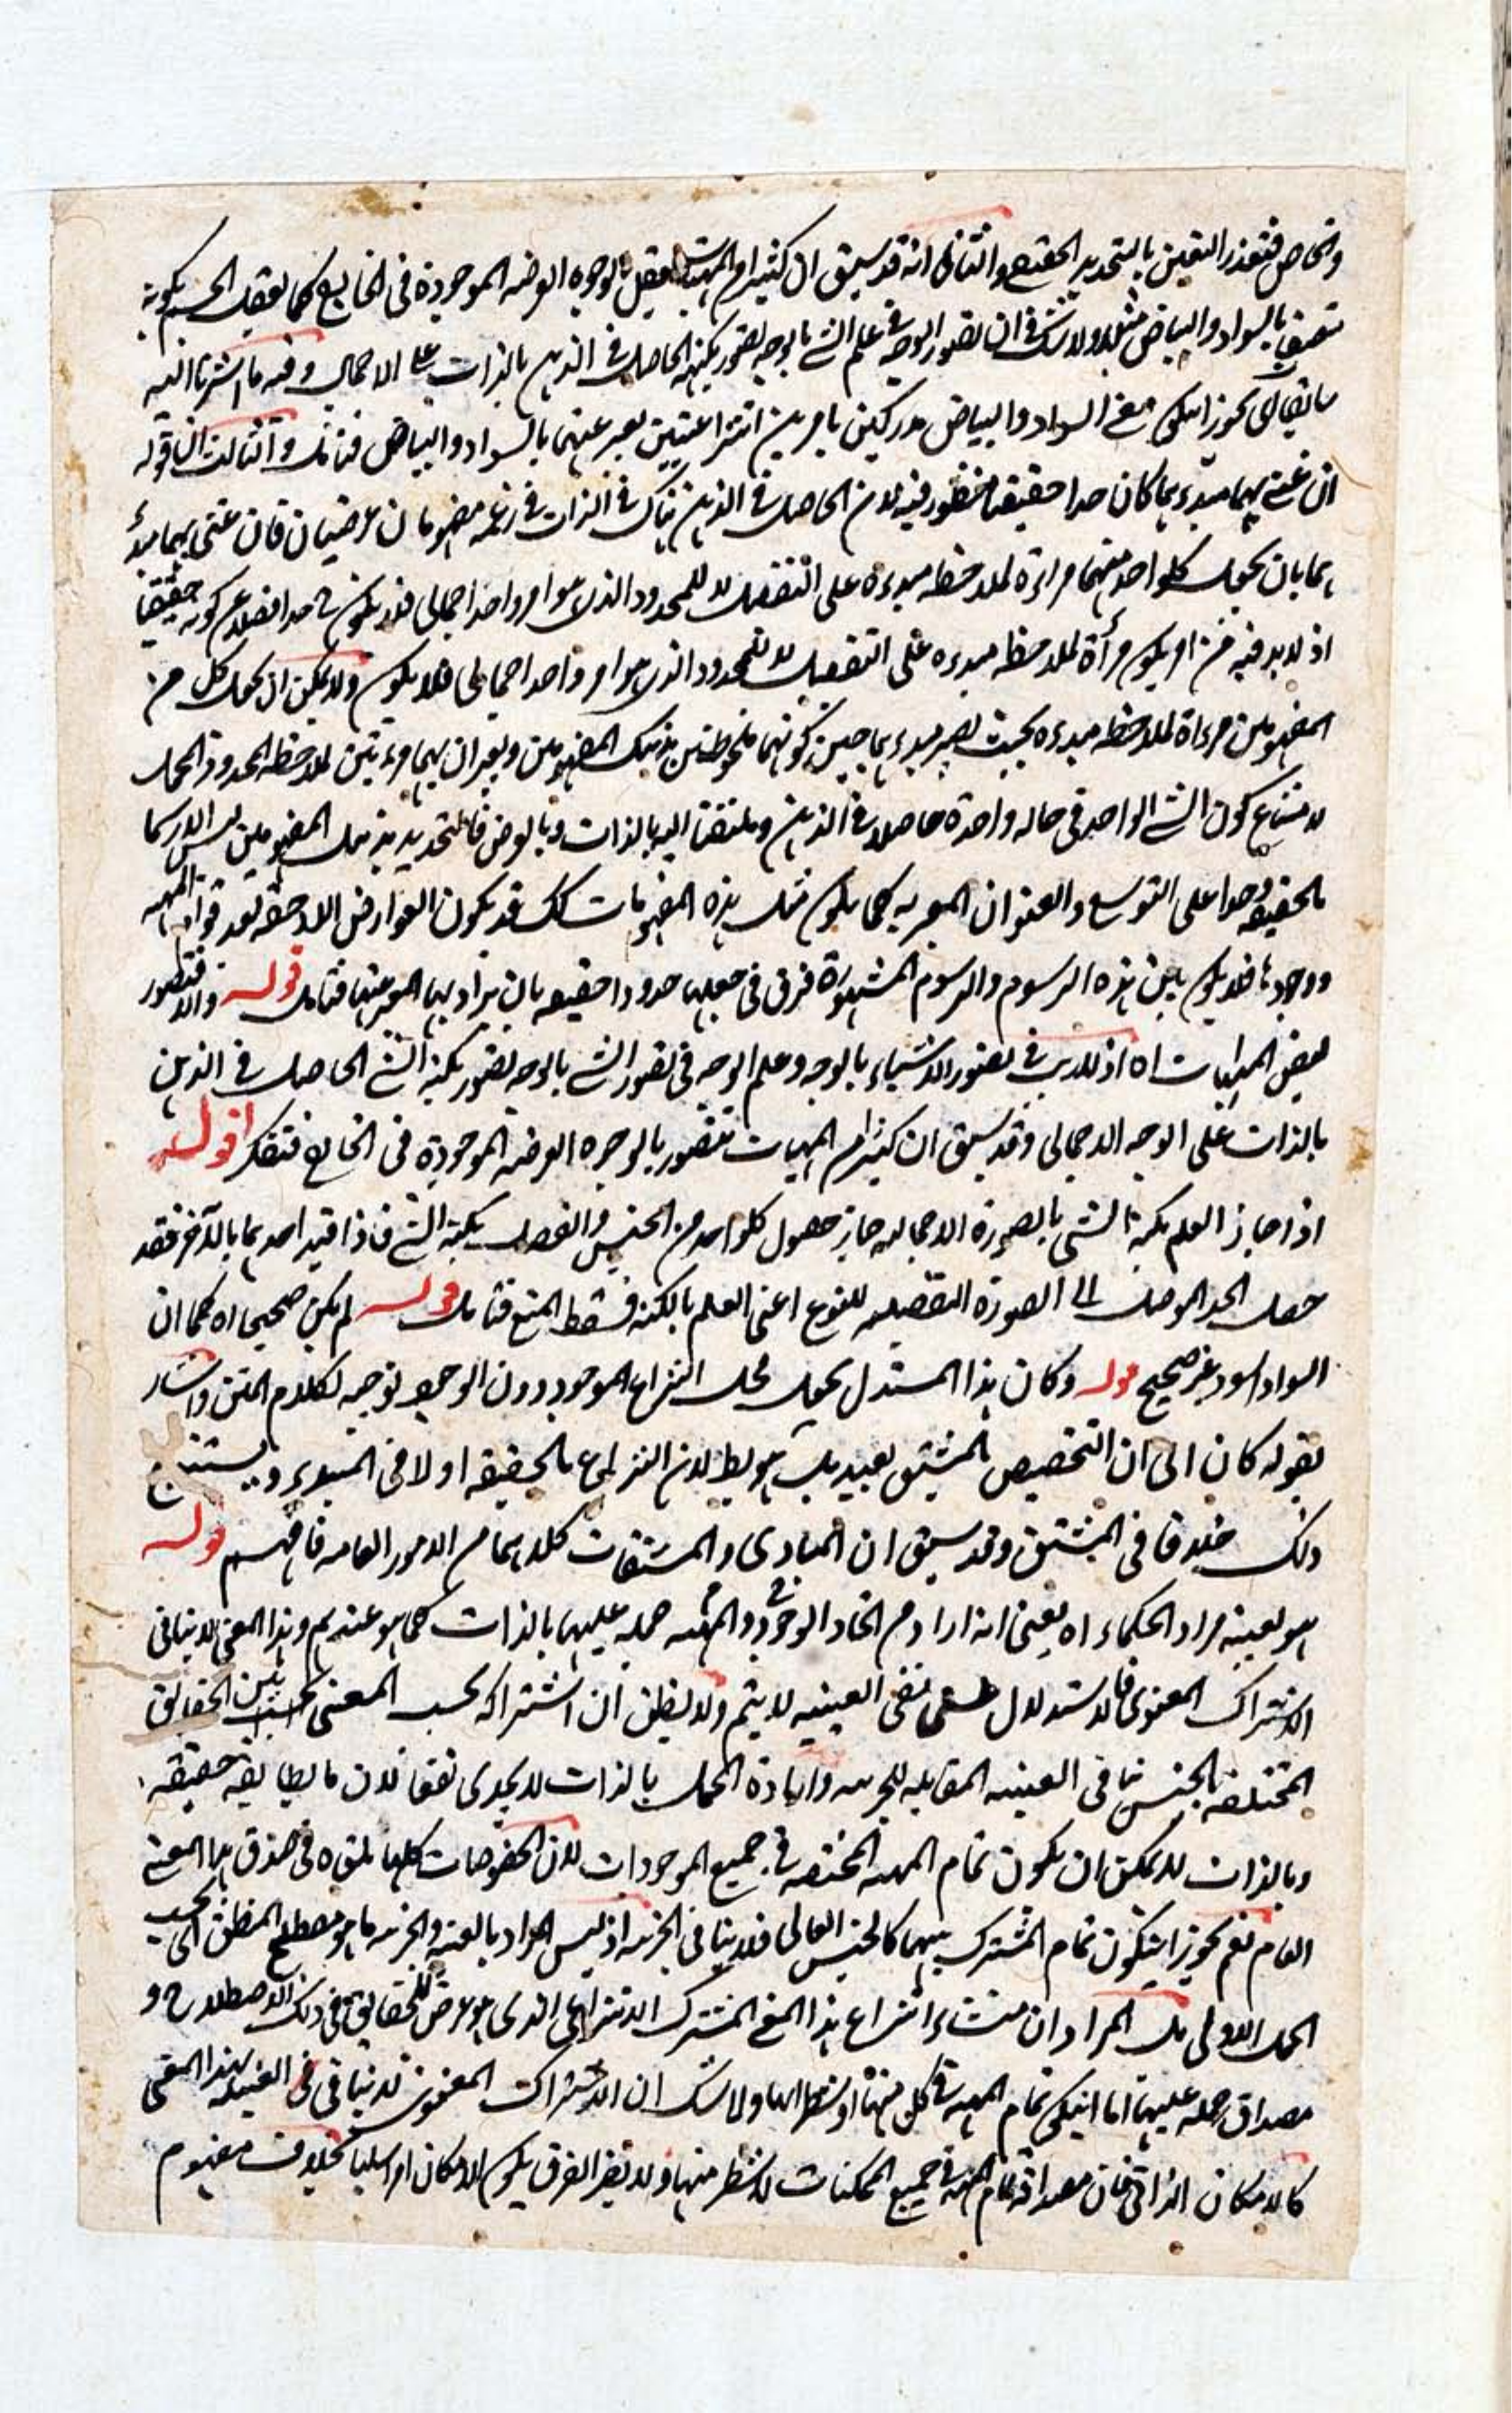 والخاص فتعذر اليقين بالتحديد الحقيقي والثاني انه قد سبق ان كثيرا من المهيات تعقل بالوجوه العرضيه الموجودة في الخارج كما يعقل الجسم بكونه
متصفا بالسواد والبياض مثلا ولا شك في ان تصور الوجه في علم الشئ بالوجه تصور بكنهه الحاصل في الذهن بالذات على الاجمال وفيه ما اشرنا اليه
سابقا اي يجوز ان يكون معنى السواد والبياض مدركين بامرين انتزاعيتين يعبر عنهما بالسواد والبياض فتأمل والثالث ان قوله
ان عنى بهما مبدءيهما كان حدا حقيقيا منظور فيه لان الحاصل في الذهن هناك في الذات في زعمه مفهومان عرضيان فان عنى بهما مبدء
بهما بان يجعل كلواحد منهما مراءة لملاحظه مبدءه على التفصيل لا للمحدود الذي هو امر واحد اجمالي فلا يكون ح حدا فضلا عن كونه حقيقيا
اذ لا بد فيه من ان يكون مرأة لملاحظه مبدءه على التفصيل لا للمحدود الذي هو امر واحد اجمالي فلا يكون ولا يمكن ان يجعل كل من
المفهومين مراءة لملاحظه مبدءه بحيث يصير مبدءيهما حين كونهما ملحوظين بذينك المفهومين ويعبران بهما مرءتين لملاحظه المحدود المجمل
لامتناع كون الشئ الواحد في حاله واحدة حاصلا في الذهن وملتفتا اليه بالذات وبالعرض فالتحديد بذينك المفهومين ليس الا رسما
بالحقيقه وحدا على التوسع والعنوان المعبر به كما يكون مثل هذه المفهومات كك قد يكون العوارض اللاحقه بعد قوام المهيه
ووجودها فلا يكون بين هذه الرسوم والرسوم المشهورة فرق في جعلها حدودا حقيقيه بان يراد بها المعبر عنها فتأمل قوله والا فتصور
بعض المهيات اه اذ لا ريب في تصور الاشياء بالوجه وعلم الوجه في تصور الشئ بالوجه تصور بكنه الشئ الحاصل في الذهن
بالذات على الوجه الاجمالي وقد سبق ان كثيرا من المهيات تتصور بالوجوه العرضيه الموجودة في الخارج فتفكر اقول
اذا جاز العلم بكنه الشئ بالصورة الاجماليه جاز حصول كلواحد من الجنس والفصل بكنه الشئ فاذا قيد احدهما بالآخر فقد
حصل الحد الموصل الى الصورة التفصيليه للنوع اعني العلم بالكنه فسقط المنع فتأمل قوله لم يكن صحيحا اه كما ان
السواد اسود غير صحيح قوله وكان هذا المستدل يجعل محل النزاع الموجود دون الوجود توجيه لكلام المتن واشار
بقوله كان الى ان التخصيص بالمشتق بعيد بل هو باطل لان النزاع بالحقيقه اولا في المبدء ويستتبع
ذلك خلافا في المشتق وقد سبق ان المبادي والمشتقات كلاهما من الامور العامه فافهم قوله
هو بعينه مراد الحكماء اه يعني انه اراد من اتحاد الوجود والمهيه حمله عليهما بالذات كما هو عندهم وهذا المعنى لا ينافي
الاشتراك المعنوي فالاستدلال على نفي العينيه لا يتم ولا يظن ان اشتراكه بحسب المعنى بين الحقايق
المختلفه بالجنس ينافي العينيه المقابله للجزئيه وارادة الحمل بالذات لا يجدي نفعا لان ما يطابقه حقيقه
وبالذات لا يمكن ان يكون تمام المهيه المختصه في جميع الموجودات لان الخصوصات كلها ملقاه في صدق هذا المعنى
العام نعم يجوز ان يكون تمام المشترك بينهما كالجنس العالي فلا ينافي الجزئيه اذ ليس المراد بالعينه والجزئيه ما هو مصطلح المنطق اي بحسب
الحمل الاولي بل المراد ان منشاء انتزاع هذا المعنى المشترك الانتزاعي الذي هو عرض للحقايق في ذلك الاصطلاح و
مصداق حمله عليهما اما ان يكون تمام المهيه في كل منهما او شطرها ولا شك ان الاشتراك المعنوي لا ينافي العينيه بهذا المعنى
كالامكان الذاتي فان مصداقه تمام المهيه في جميع الممكنات لا شطر منها ولا يضر الفرق بكون الامكان امرا سلبيا بخلاف مفهوم